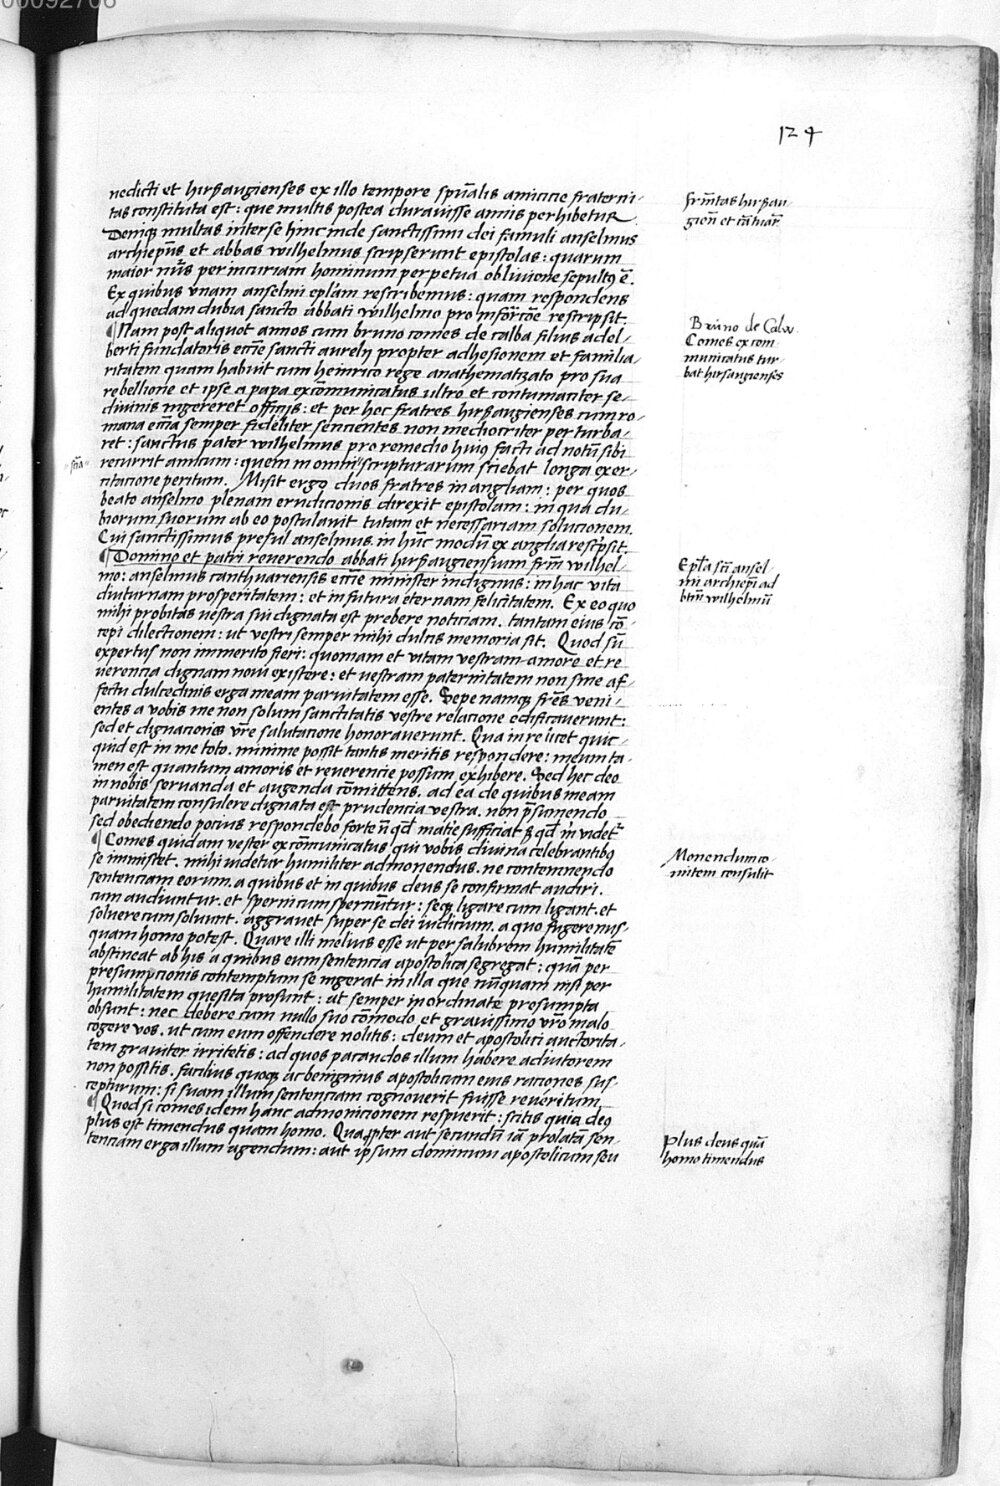 00092706
124
nedicti et hirßaugienses ex illo tempore spūalis amicicie fraterni-
tas constituta est: que multis postea duravisse annis perhibetur.
Deniqꝫ multas inter se hinc inde sanctissimi dei famuli anselmus
archiep̄us et abbas wilhelmus scripserunt epistolas: quarum
maior nūs per incuriam hominum perpetua oblivione sepultꝰ ē.
Ex quibus vnam anselmi ep̄lam rescribemus: quam respondens
ad quedam dubia sancto abbati wilhelmo pro informatōe rescripsit.
¶ Nam post aliquot annos cum bruno comes de calba filius adel-
berti fundatoris eccīe sancti aurelij propter adhesionem et familia
ritatem quam habuit cum heinrico rege anathematizato pro sua
rebellione et ipse a papa excōmunicatus ultro et contumaciter se-
divinis ingereret officijs: et per hoc fratres hirßaugienses cum ro-
mana eccīa semper fideliter sencientes non mediocriter perturba-
ret: sanctus pater wilhelmus pro remedio huiꝰ facti ad notū sibi
recurrit amicum: quem in omni scripturarum sciebat longa exer-
citacione peritum. Misit ergo duos fratres in angliam: per quos
beato anselmo plenam erudicionis direxit epistolam: in qua du-
biorum suorum ab eo postulavit tutam et necessariam solucionem.
Cui sanctissimus presul anselmus in hūc modū ex anglia rescpsit.
¶ Domino et patri reverendo abbati hirßaugiensium frīm wilhel-
mo: anselmus canthuariensis eccīe minister indignus: in hac vita
diuturnam prosperitatem: et in futura eternam felicitatem. Ex eo quo
mihi probitas vestra sui dignata est prebere noticiam. tantam eius cō-
cepi dilectionem: ut vestri semper mihi dulcis memoria sit. Quod sū
expertus non immerito fieri: quoniam et vitam vestram amore et re
verencia dignam novi existere: et vestram paternitatem non sine af-
fectu dulcedinis erga meam parvitatem esse. Sepe namqꝫ frēs veni-
entes a vobis me non solum sanctitatis vestre relacione edificaverunt:
sed et dignacionis vr̄e salutacione honoraverunt. Qua in re licet quic-
quid est in me toto. minime possit tantis meritis respondere: meum ta-
men est quantum amoris et reverencie possum exhibere. Sed hec deo
in nobis servanda et augenda cōmittens. ad ea de quibus meam
parvitatem consulere dignata est prudencia vestra. non p̄sumendo
sed obediendo pocius respondebo forte n̄ qd̄ matīe sufficiat ꝫ qd̄ m̄ videt̄
¶ Comes quidam vester excōmunicatus qui vobis divina celebrantibꝰ
se immiscet. mihi videtur humiliter admonendus. ne contemnendo
sentenciam eorum. a quibus et in quibus deus se confirmat audiri.
cum audiuntur. et sperni cum spernūtur: seqꝫ ligare cum ligant. et
solvere cum solvunt. aggravet super se dei iudicium. a quo fugere nus-
quam homo potest. Quare illi melius esse ut per salubrem humilitatē
abstineat ab his a quibus eum sentencia apostolica segregat: quā per
presumpcionis contemptum se ingerat in illa que nūquam nisi per
humilitatem quesita prosunt: ut semper inordinate presumpta
obsunt: nec debere eum nullo suo cōmodo et gravissimo vr̄o malo
cogere vos. ut cum eum offendere nolitis: deum et apostolici auctorita-
tem graviter irritetis: ad quos pacandos illum habere adiutorem
non possitis. facilius quoqꝫ ac benignius apostolicum eius raciones sus-
cepturum: si suam illum sentenciam cognoverit fuisse reveritum.
¶ Quod si comes idem hanc admonicionem respuerit: scitis quia deꝰ
plus est timendus quam homo. Quapter aut secundū iā prolatā sen-
tenciam erga illum agendum: aut ipsum dominum apostolicum seu
frn̄itas hirßau-
gien̄ et cātuar̄
Bruno de Calw.
Comes excom-
municatus tur-
bat hirsaugienses
scīa
Ep̄la scī ansel-
mi archiep̄i ad
btm̄ wilhelmū
Monendum co-
mitem consulit
Plus deus quā
homo timendus